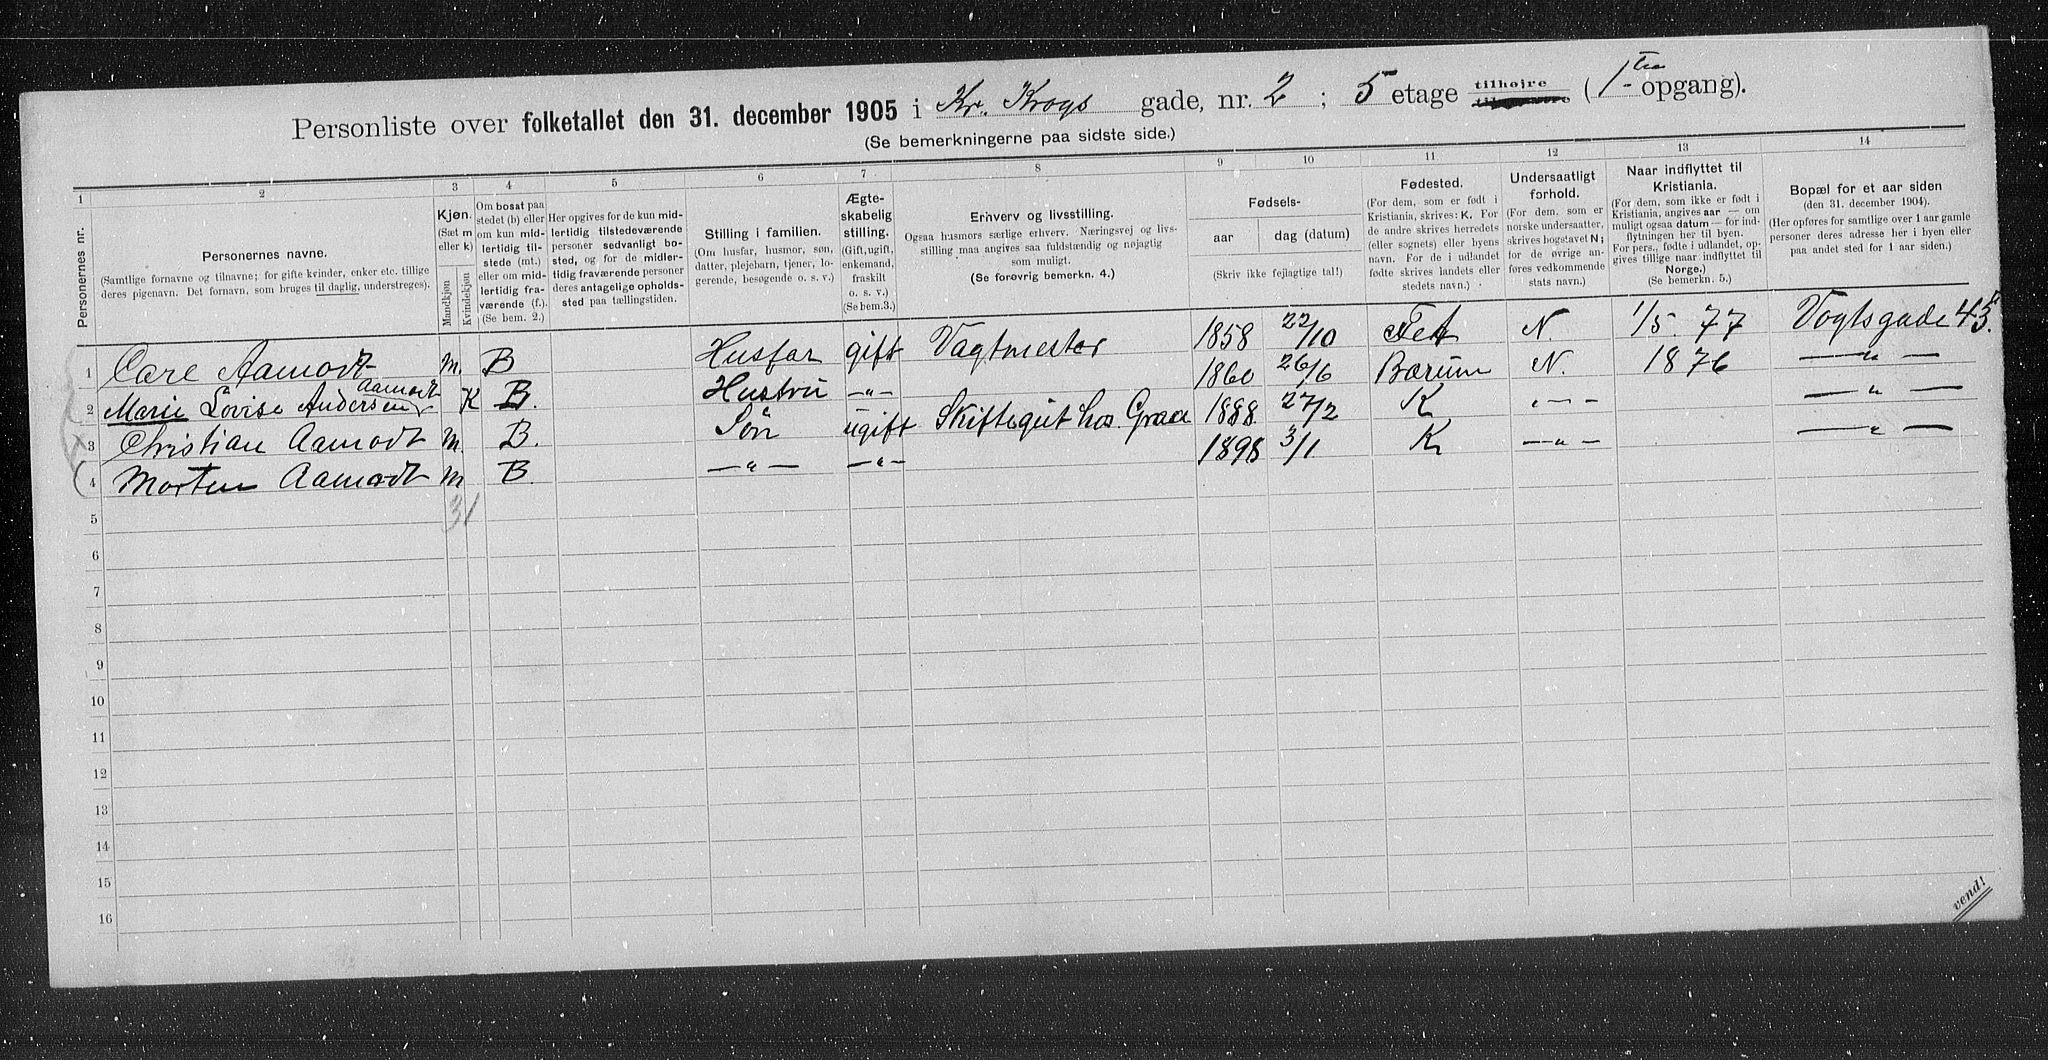 Personliste over folketallet den 31. december 1905 i Kr. Krogs gade, nr. 2 ; 5 etage tilhøjre ( 1ste opgang).
(Se bemerkningerne paa sidste side.)
1 2 3 4 5 6 7 8 9 10 11 12 13 14
Personernes nr.
Personernes navne.
(Samtlige fornavne og tilnavne; for gifte kvinder, enker etc. tillige
deres pigenavn. Det fornavn, som bruges til daglig, understreges).
Kjøn.
(Sæt m
eller k)
Mandkjøn
Kvindekjøn
Om bosat paa
stedet (b) eller
om kun mid-
lertidig til-
stede (mt.)
eller om mid-
lertidig fra-
værende (f.).
(Se bem. 2.)
Her opgives for de kun mid-
lertidig tilstedeværende
personer sedvanligt bo-
sted, og for de midler-
tidig fraværende personer
deres antagelige opholds-
sted paa tællingstiden.
Stilling i familien.
(Om husfar, husmor, søn,
datter, plejebarn, tjener, lo-
gerende, besøgende o. s. v.)
Ægte-
skabelig
stilling.
(Gift, ugift,
enkemand,
fraskilt
o. s. v.)
(Se bem.3.)
Erhverv og livsstilling.
Ogsaa husmors særlige erhverv. Næringsvej og livs-
stilling maa angives saa fuldstændig og nøjagtig
som muligt.
(Se forøvrig bemerkn. 4.)
Fødsels-
aar dag (datum)
(Skriv ikke fejlagtige tal!)
Fødested.
(For dem, som er født i
Kristiania, skrives: K. For
de andre skrives herredets
(eller sognets) eller byens
navn. For de i udlandet
fødte skrives landets eller
stedets navn.)
Undersaatligt
forhold.
(For dem, som er
norske undersaatter,
skrives bogstavet N;
for de øvrige an-
føres vedkommende
stats navn.)
Naar indflyttet til
Kristiania.
(For dem, som ikke er født i
Kristiania, angives aar — om
muligt ogsaa datum — for ind-
flytningen her til byen.
For pers., fødte i udlandet, op-
gives tillige naar indflyttet til
Norge.)
(Se bemerkn. 5.)
Bopæl for et aar siden
(den 31. december 1904).
(Her opføres for samtlige over 1 aar gamle
personer deres adresse her i byen eller
paa andet sted for 1 aar siden.)
1 Carl Aamodt m. B Husfar gift Vagtmester 1858 22/10 Fet N. 1/5. 77 Vogtsgade 45.
Aamodt
2 Marie Lovise Andersen K B. Hustru -„- 1860 26/6 Bærum N. 1876 -„-
3 Christian Aamodt m. B. Søn ugift Skiftegut hos Graa 1888 27/2 K -„- -„-
4 Morten Aamodt m B. -„- -„- 1898 3/1 K -„- -„-
5 31
6
7
8
9
10
11
12
13
14
15
16
vend!